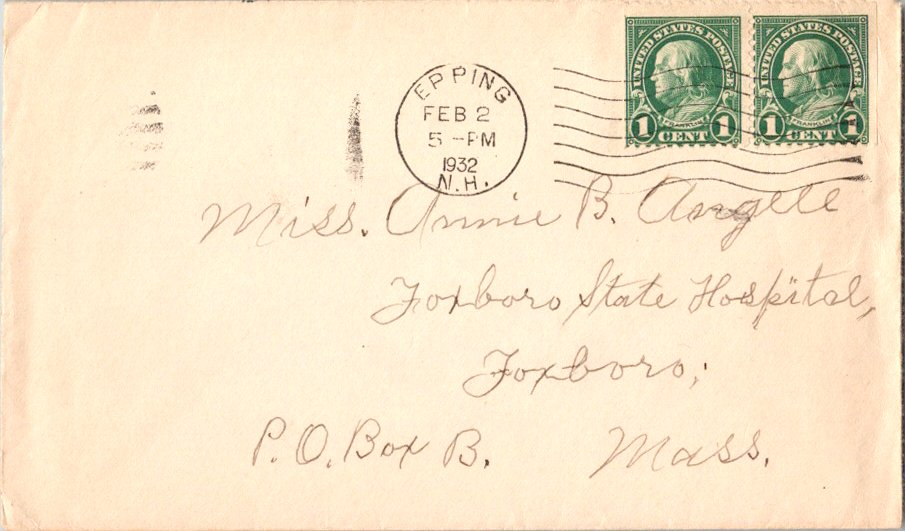 EPPING
FEB 2
5-PM
1932
N.H.
UNITED STATES POSTAGE
FRANKLIN
1 CENT 1
UNITED STATES POSTAGE
FRANKLIN
1 CENT 1
Miss. Annie B.
Foxboro State Hospital,
Foxboro,
P.O. Box B. Mass.